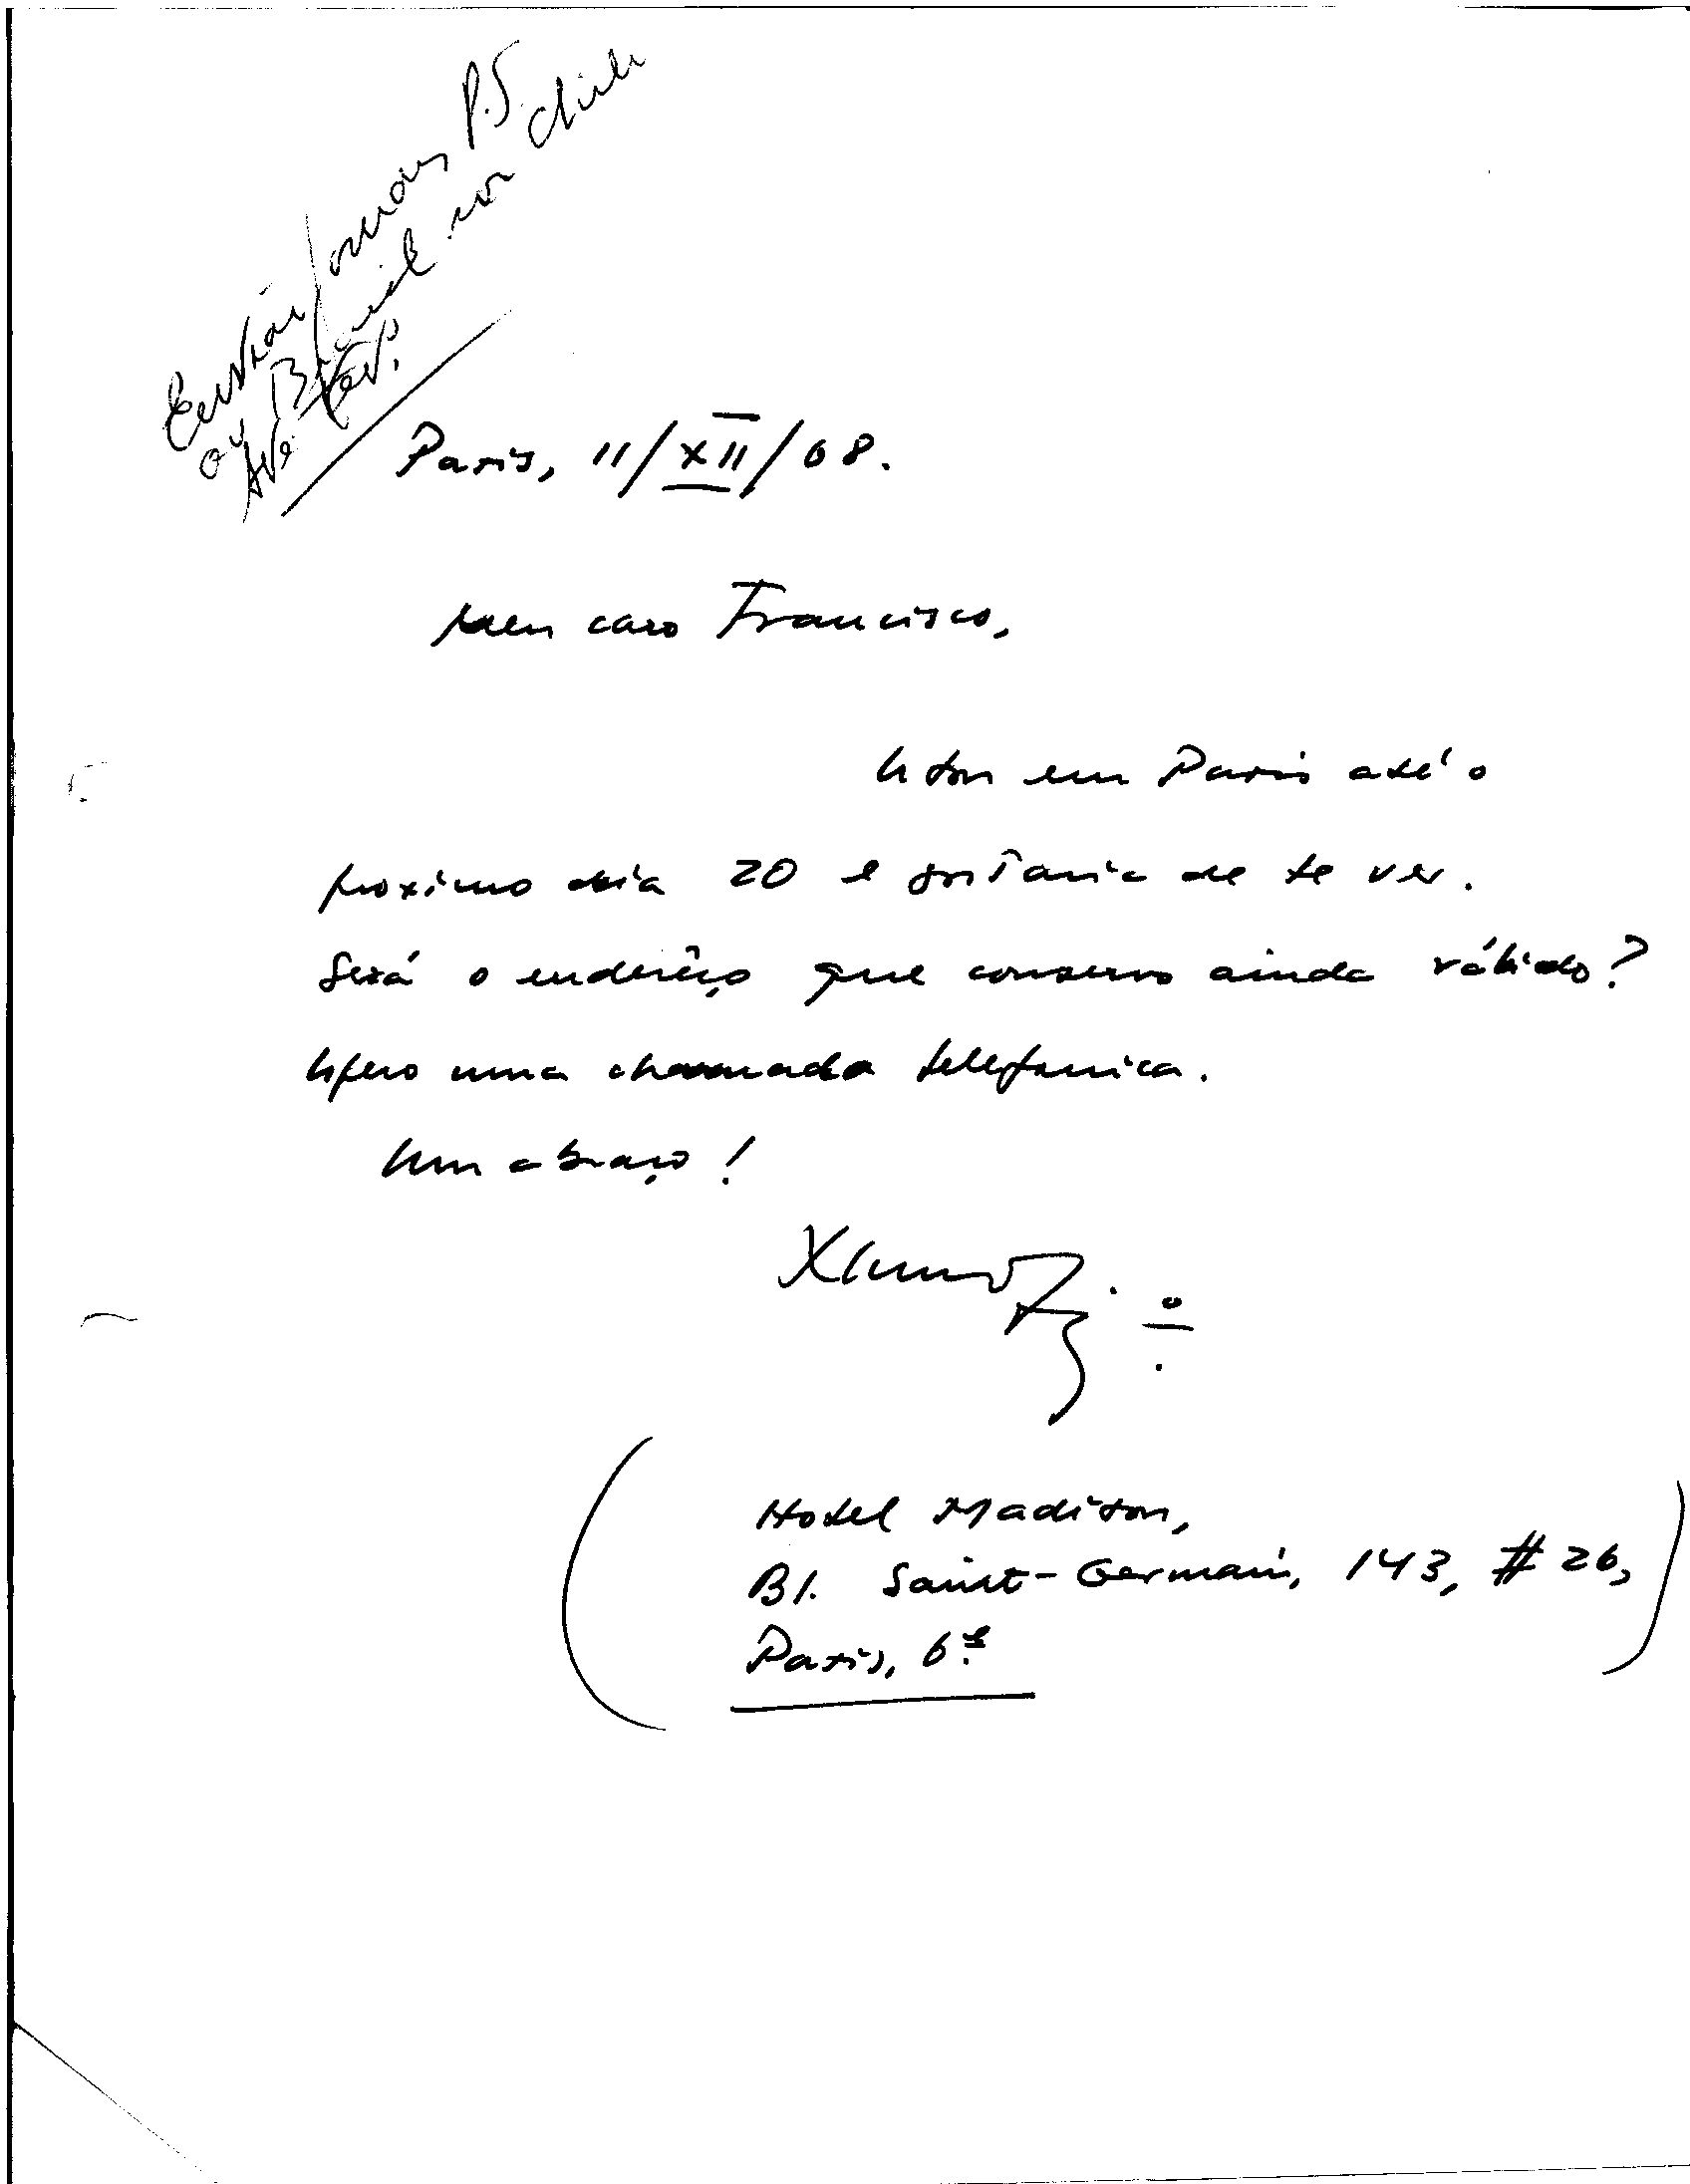 P.S.
ou Brasil no Chile
até fev.
Paris, 11/XII/68.
Meu caro Francisco,
Estou em Paris até o
proximo dia 20 e gostaria de te ver.
Será o enderêço que conservo ainda válido?
Espero uma chamada telefonica.
Um abraço!
Hotel Madison,
Bl. Saint-Germain, 143, # 26,
Paris, 6e